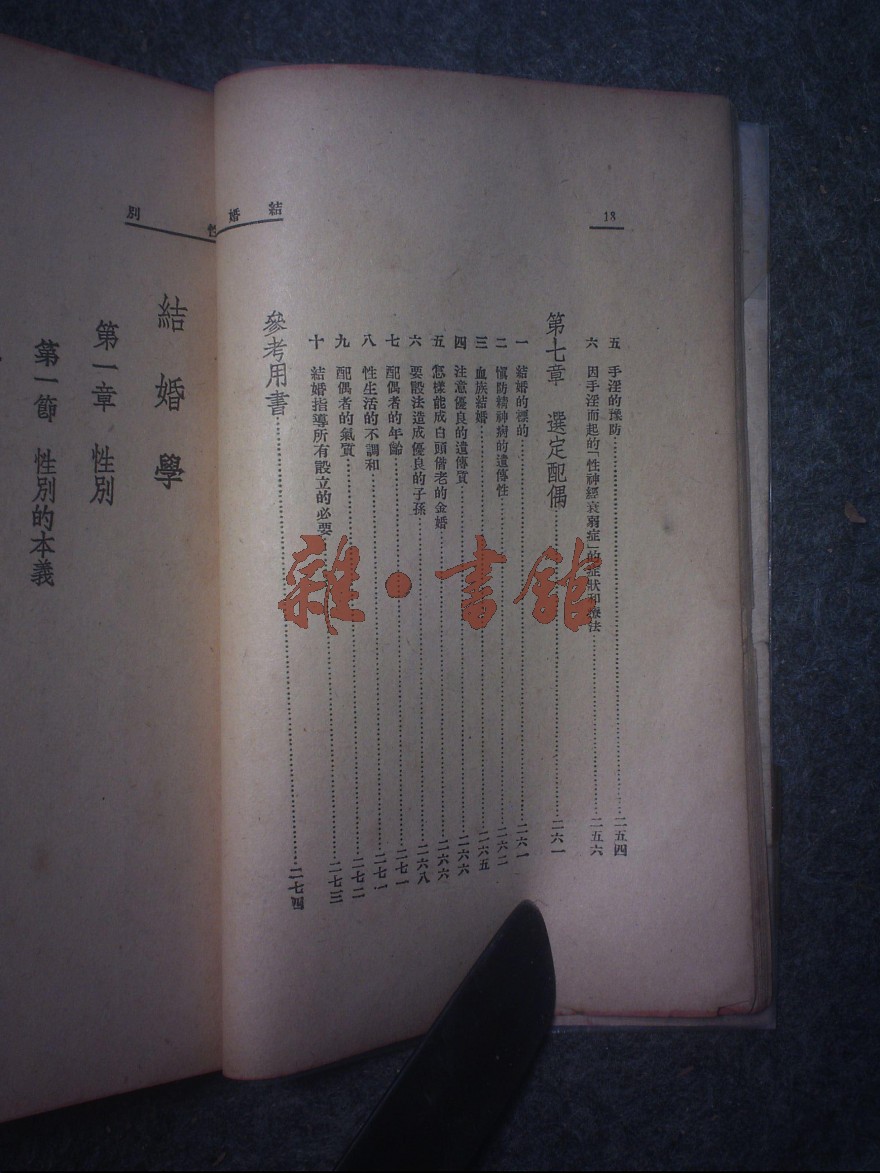 18
結婚
五 手淫的豫防……二五四
六 因手淫而起的「性神經衰弱症」的症狀和療法……二五六
第七章 選定配偶……二六一
一 結婚的標的……二六一
二 愼防精神病的遺傳性……二六二
三 血族結婚……二六五
四 注意優良的遺傳質……二六六
五 怎樣能成白頭偕老的金婚……二六六
六 要設法造成優良的子孫……二六八
七 配偶者的年齡……二七一
八 性生活的不調和……二七一
九 配偶者的氣質……二七二
十 結婚指導所有設立的必要……二七三
參考用書……二七四
性別
結婚學
第一章 性別
第一節 性別的本義
雜·書館